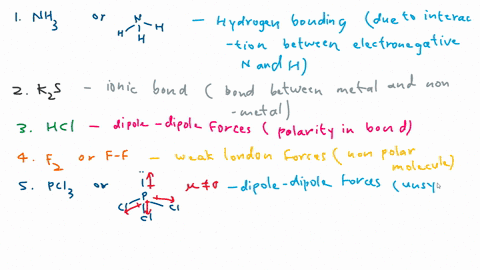 1. NH3 or N H H H - Hydrogen bonding (due to interac
-tion between electronegative
N and H)
2. K2S - ionic bond (bond between metal and non
-metal)
3. HCl - dipole-dipole forces (polarity in bond)
4. F2 or F-F - weak london forces (non polar
molecule)
5. PCl3 or P Cl Cl Cl μ≠0 - dipole-dipole forces (unsy